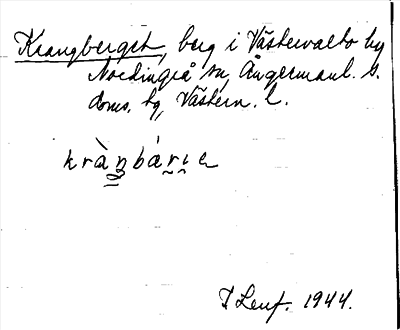 Krangberget, berg i Västervalto by
Nordingrå sn, Ångermanl. s.
doms. hg, Västern. l.
kràŋbárɩe
I Leuf. 1944.